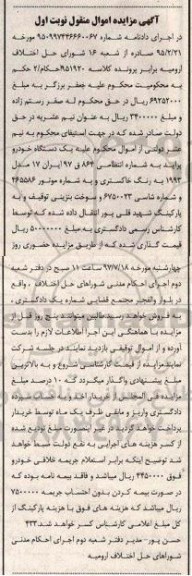 آگهی مزایده اموال منقول نوبت اول
در اجرای دادنامه شماره ۹۵۰۹۹۷۴۴۶۶۶۰۰۰۶۷ مورخه
۹۵/۲/۲۱ صادره از شعبه ۱۶ شورای حل اختلاف
ارومیه برابر پرونده کلاسه ۹۵۱۹۲۰حکام/۲ حکم
به محکومیت محکوم علیه جعفر برزگر به مبلغ
۶۹۲۵۲۰۰۰ ریال در حق محکوم له صفر رستم زاده
و مبلغ ۳۴۰۰۰۰۰ ریال به عنوان نیم عشریه در حق
دولت صادر شده که در جهت استیفای محکوم به نیم
عشر دولتی از اموال محکوم علیه یک دستگاه خودرو
پراید به شماره انتظامی ۸۶۴ ق ۹۷ ایران ۱۷ مدل
۱۹۹۳ به رنگ خاکستری و به شماره موتور ۲۶۵۵۸۶
و شماره شاسی ۶۷۵۰۰۲۳ و سوخت بنزینی توقیف و به
پارکینگ شهید قلی پور انتقال داده شده که توسط
کارشناس رسمی دادگستری به مبلغ ۵۰۰۰۰۰۰۰ ریال
قیمت گذاری شده که از طریق مزایده حضوری روز
چهارشنبه مورخه ۹۷/۷/۱۸ ساعت ۱۱ صبح در دفتر شعبه
دوم اجرای احکام مدنی شوراهای حل اختلاف ، واقع
در بلوار والفجر مجتمع قضایی شماره یک دادگستری ،
به فروش خواهد رسید طالبین میتوانند پنج روز قبل از
مزایده با هماهنگی این اجرا اطلاعات لازم را بدست
آورده و از اموال توقیفی بازدید نمایند در جلسه شرکت
نمایند مزایده از قیمت کارشناسی شروع و به بالاترین
مبلغ پیشنهادی واگذار میگردد که ۱۰ درصد مبلغ
مزایده فی المجلس از خریدار اخذ و به حساب سپرده
دادگستری واریز و مابقی ظرف یک ماه توسط خریدار
پرداخت خواهد گردید در غیر اینصورت مبلغ تودیع شده
از کسر هزینه های اجرایی به نفع دولت ضبط خواهد
شد توضیح اینکه برابر استعلام جریمه خلافی خودرو
فوق ۳۴۵۰۰۰۰ ریال میباشد و فاقد بیمه نامه بوده که
در صورت بیمه کردن بدون احتساب جریمه ۷۵۰۰۰۰۰
ریال میباشد که هزینه های فوق با هزینه پارکینگ از
کل مبلغ اعلامی کارشناس کسر خواهد شد.۴۳۳
حسن پور- مدیر دفتر شعبه دوم اجرای احکام مدنی
شوراهای حل اختلاف ارومیه